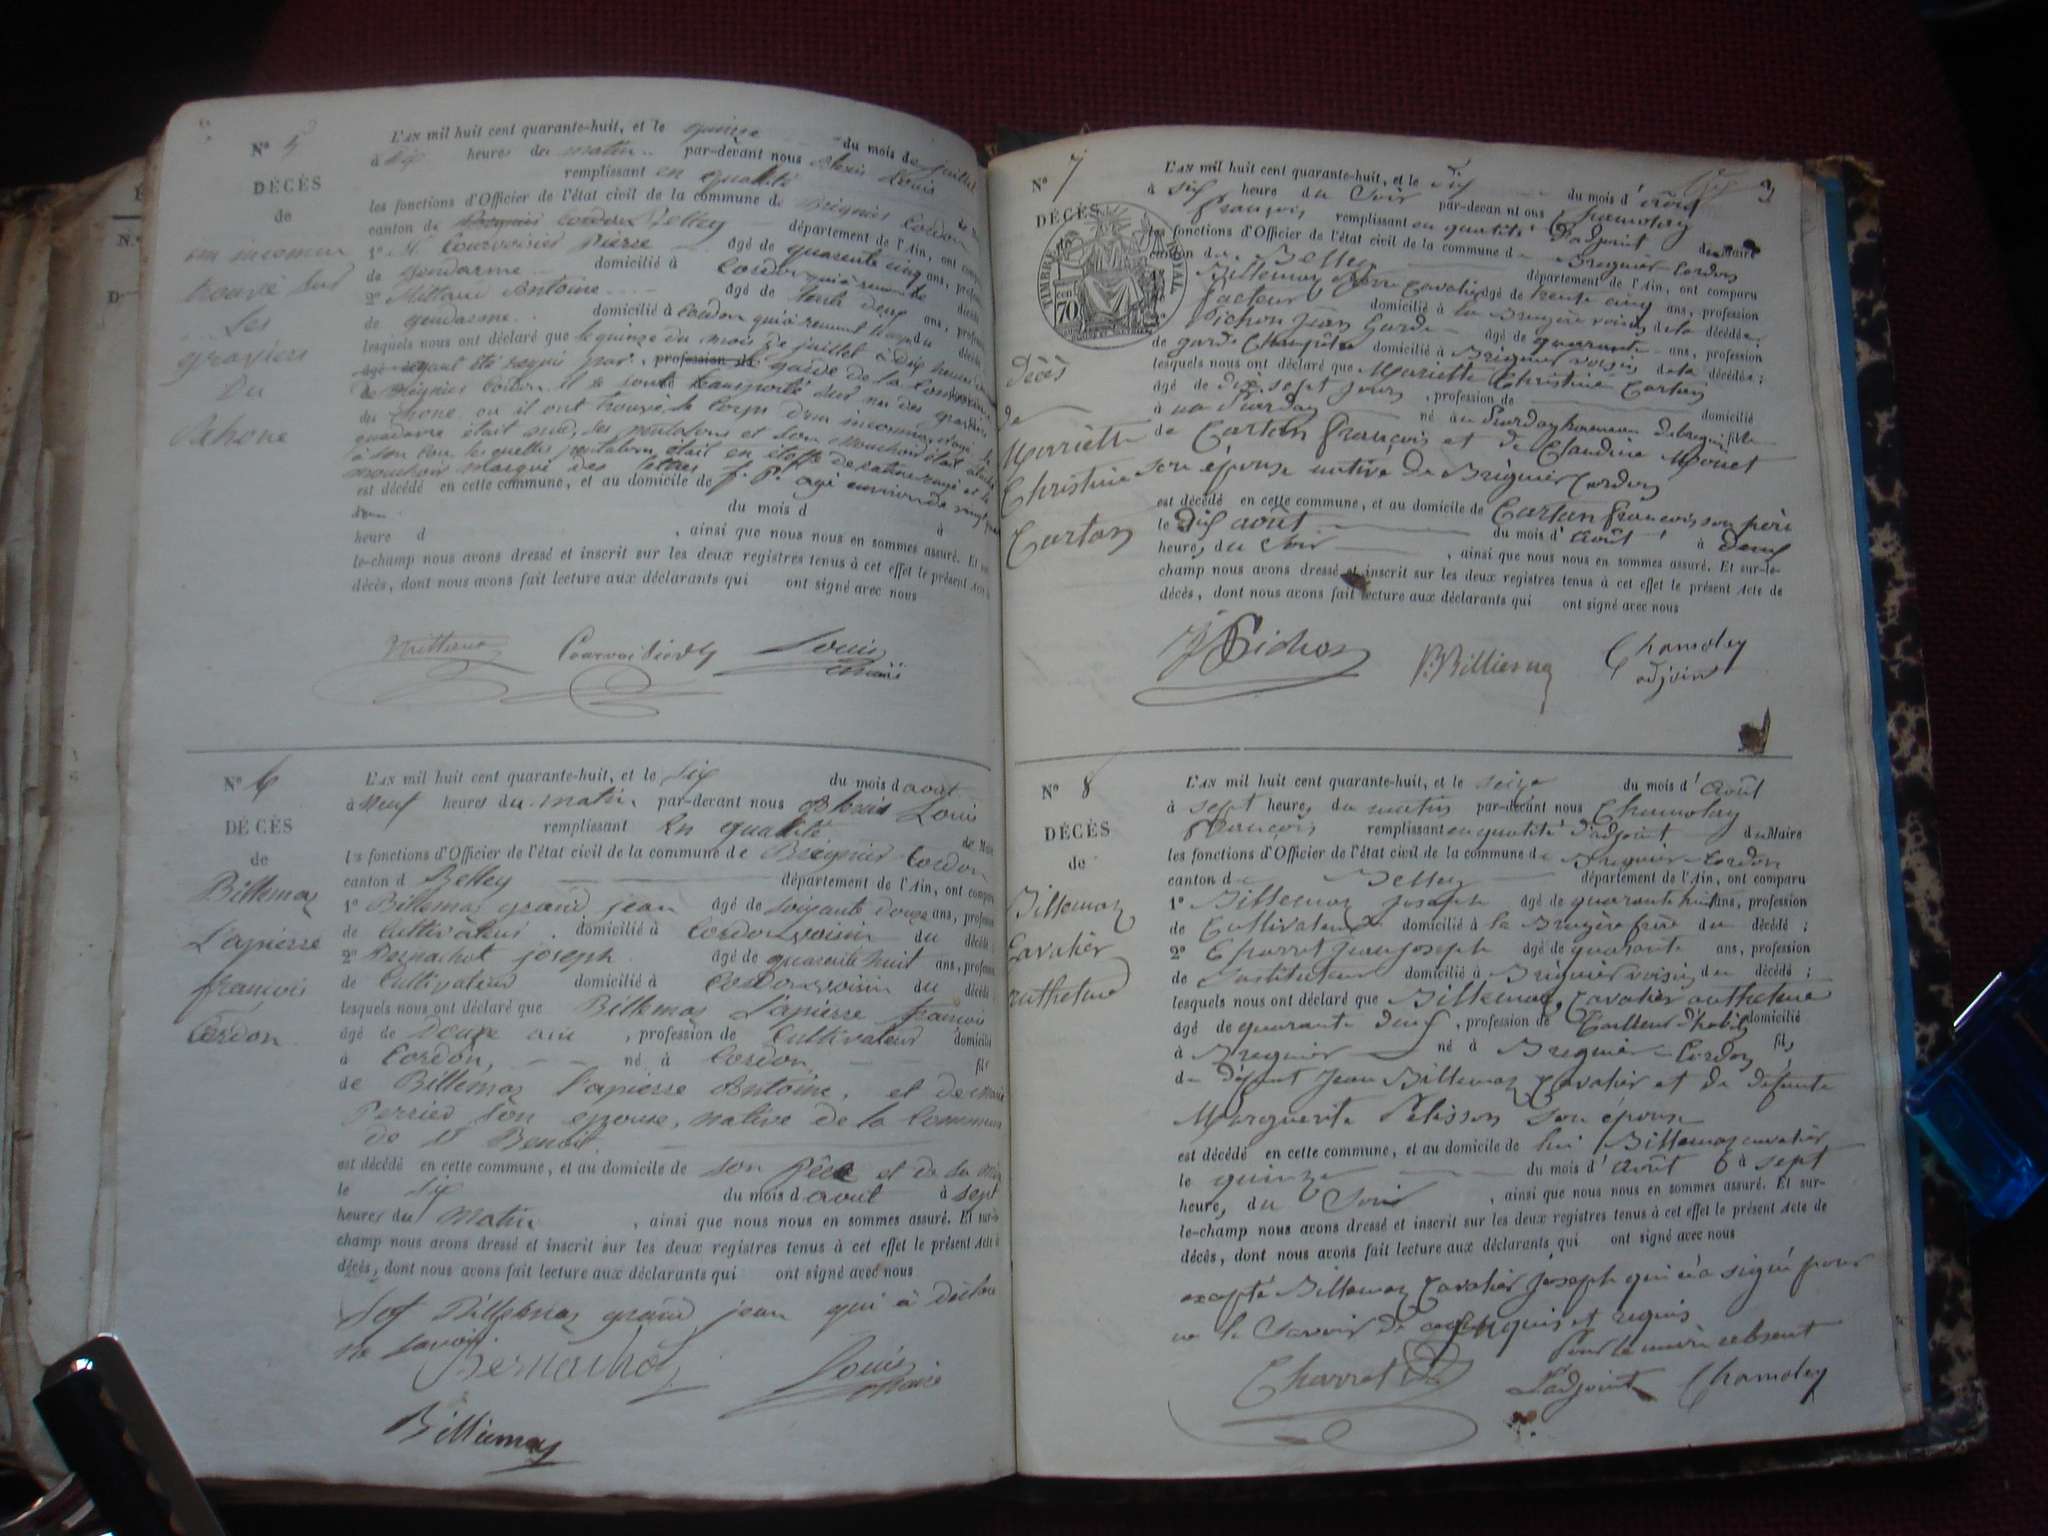 Nº 5
DÉCÈS
de
un inconnu
trouvé sur
les
graviers
du
Rhone
L'AN mil huit cent quarante-huit, et le quinze du mois de juillet
à dix heures du matin par-devant nous Louis
remplissant en qualité
les fonctions d'Officier de l'état civil de la commune de Brégnier Cordon
canton de Belley département de l'Ain, ont comparu
1º Courvoisier Pierre âgé de quarente cinq ans, profession
de Gendarme domicilié à Cordon
2º Mittané Antoine âgé de trente deux ans, profession
de gendarme domicilié à Cordon
lesquels nous ont déclaré que le quinze du mois de juillet à dix heures
ayant été requis par garde de la commune
de Brégnier Cordon il se sont transporté sur
du Rhone ou il ont trouvé le corps d'un inconnu
quadavre était nud, ses pentalons et son mouchoir était
à son cou pentalon était en étoffe
mouchoir marqué des lettres
est décédé en cette commune, et au domicile de f. P. agé environ de vingt
du mois d
heure d à
, ainsi que nous nous en sommes assuré. Et sur-
le-champ nous avons dressé et inscrit sur les deux registres tenus à cet effet le présent Acte de
décès, dont nous avons fait lecture aux déclarants qui ont signé avec nous
Courvoisier Louis
Maire
Nº 6
DÉCÈS
de
Billemaz
Lapierre
françois
Cordon
L'AN mil huit cent quarante-huit, et le six du mois d août
à neuf heures du matin par-devant nous Louis
remplissant en qualité de Maire
les fonctions d'Officier de l'état civil de la commune de Brégnier Cordon
canton d Belley département de l'Ain, ont comparu
1º Billemaz grand jean âgé de soixante douze ans, profession
de Cultivateur domicilié à Cordon voisin du décédé
2º Bernachot joseph âgé de quarente huit ans, profession
de Cultivateur domicilié à Cordon voisin du décédé
lesquels nous ont déclaré que Billemaz Lapierre françois
âgé de Douze ans, profession de Cultivateur domicilié
à Cordon, né à Cordon, fils
de Billemaz Lapierre Antoine, et de
Perried son epouse, native de la Commune
de St Benoit
est décédé en cette commune, et au domicile de son père et de sa mère
le six du mois d août à sept
heures du matin, ainsi que nous nous en sommes assuré. Et sur-le-
champ nous avons dressé et inscrit sur les deux registres tenus à cet effet le présent Acte de
décès, dont nous avons fait lecture aux déclarants qui ont signé avec nous
Billemaz grand jean qui à déclaré
ne savoir
Bernachot Louis
Maire
Billiemaz
3
Nº 7
DÉCÈS
TIMBRE ROYAL
70 cent
Décès
de
Marriette
Christine
Cartan
L'AN mil huit cent quarante-huit, et le dix du mois d' août
à six heure du Soir par-devant nous Chamolay
François remplissant en qualité d'adjoint du Maire
les fonctions d'Officier de l'état civil de la commune de Brégnier-Cordon
canton de Belley département de l'Ain, ont comparu
Billemaz Pierre Cavalier âgé de trente cinq ans, profession
facteur domicilié à la Bruyère voisin de la décédée
Pichon Jean Garde âgé de quarante ans, profession
de garde Champêtre domicilié à Brégnier voisin de la décédée;
lesquels nous ont déclaré que Marriette Christine Cartan
âgé de dix sept jours, profession de domicilié
à né au hameau fille
de Cartan françois et de Claudine Monet
son épouse native de Brégnier Cordon
est décédé en cette commune, et au domicile de Cartan françois son père
le Dix août du mois d' août à deux
heures du Soir, ainsi que nous nous en sommes assuré. Et sur-le-
champ nous avons dressé et inscrit sur les deux registres tenus à cet effet le présent Acte de
décès, dont nous avons fait lecture aux déclarants qui ont signé avec nous
Pichon P. Billiemaz Chamolay
adjoint
Nº 8
DÉCÈS
de
Billemaz
Cavalier
Anthelme
L'AN mil huit cent quarante-huit, et le seize du mois d' Août
à sept heures du matin par-devant nous Chamolay
François remplissant en qualité d'adjoint du Maire
les fonctions d'Officier de l'état civil de la commune de Brégnier-Cordon
canton de Belley département de l'Ain, ont comparu
1º Billemaz Joseph âgé de quarante huit ans, profession
de Cultivateur domicilié à la Bruyère frère du décédé;
2º Charret Jean Joseph âgé de quarante ans, profession
de Instituteur domicilié à Brégnier voisin du décédé;
lesquels nous ont déclaré que Billemaz, Cavalier Anthelme
âgé de quarante deux, profession de Tailleur d'habits domicilié
à Brégnier né à Brégnier-Cordon fils
de défunt Jean Billemaz Cavalier et de défunte
Marguerite Pélisson son épouse
est décédé en cette commune, et au domicile de lui Billemaz cavalier
le quinze du mois d' Août à sept
heures du Soir, ainsi que nous nous en sommes assuré. Et sur-
le-champ nous avons dressé et inscrit sur les deux registres tenus à cet effet le présent Acte de
décès, dont nous avons fait lecture aux déclarants qui ont signé avec nous
excepté Billemaz Cavalier Joseph qui n'a signé pour
ne le savoir de ce enquis et requis
Pour le maire absent
Charret L'adjoint Chamolay